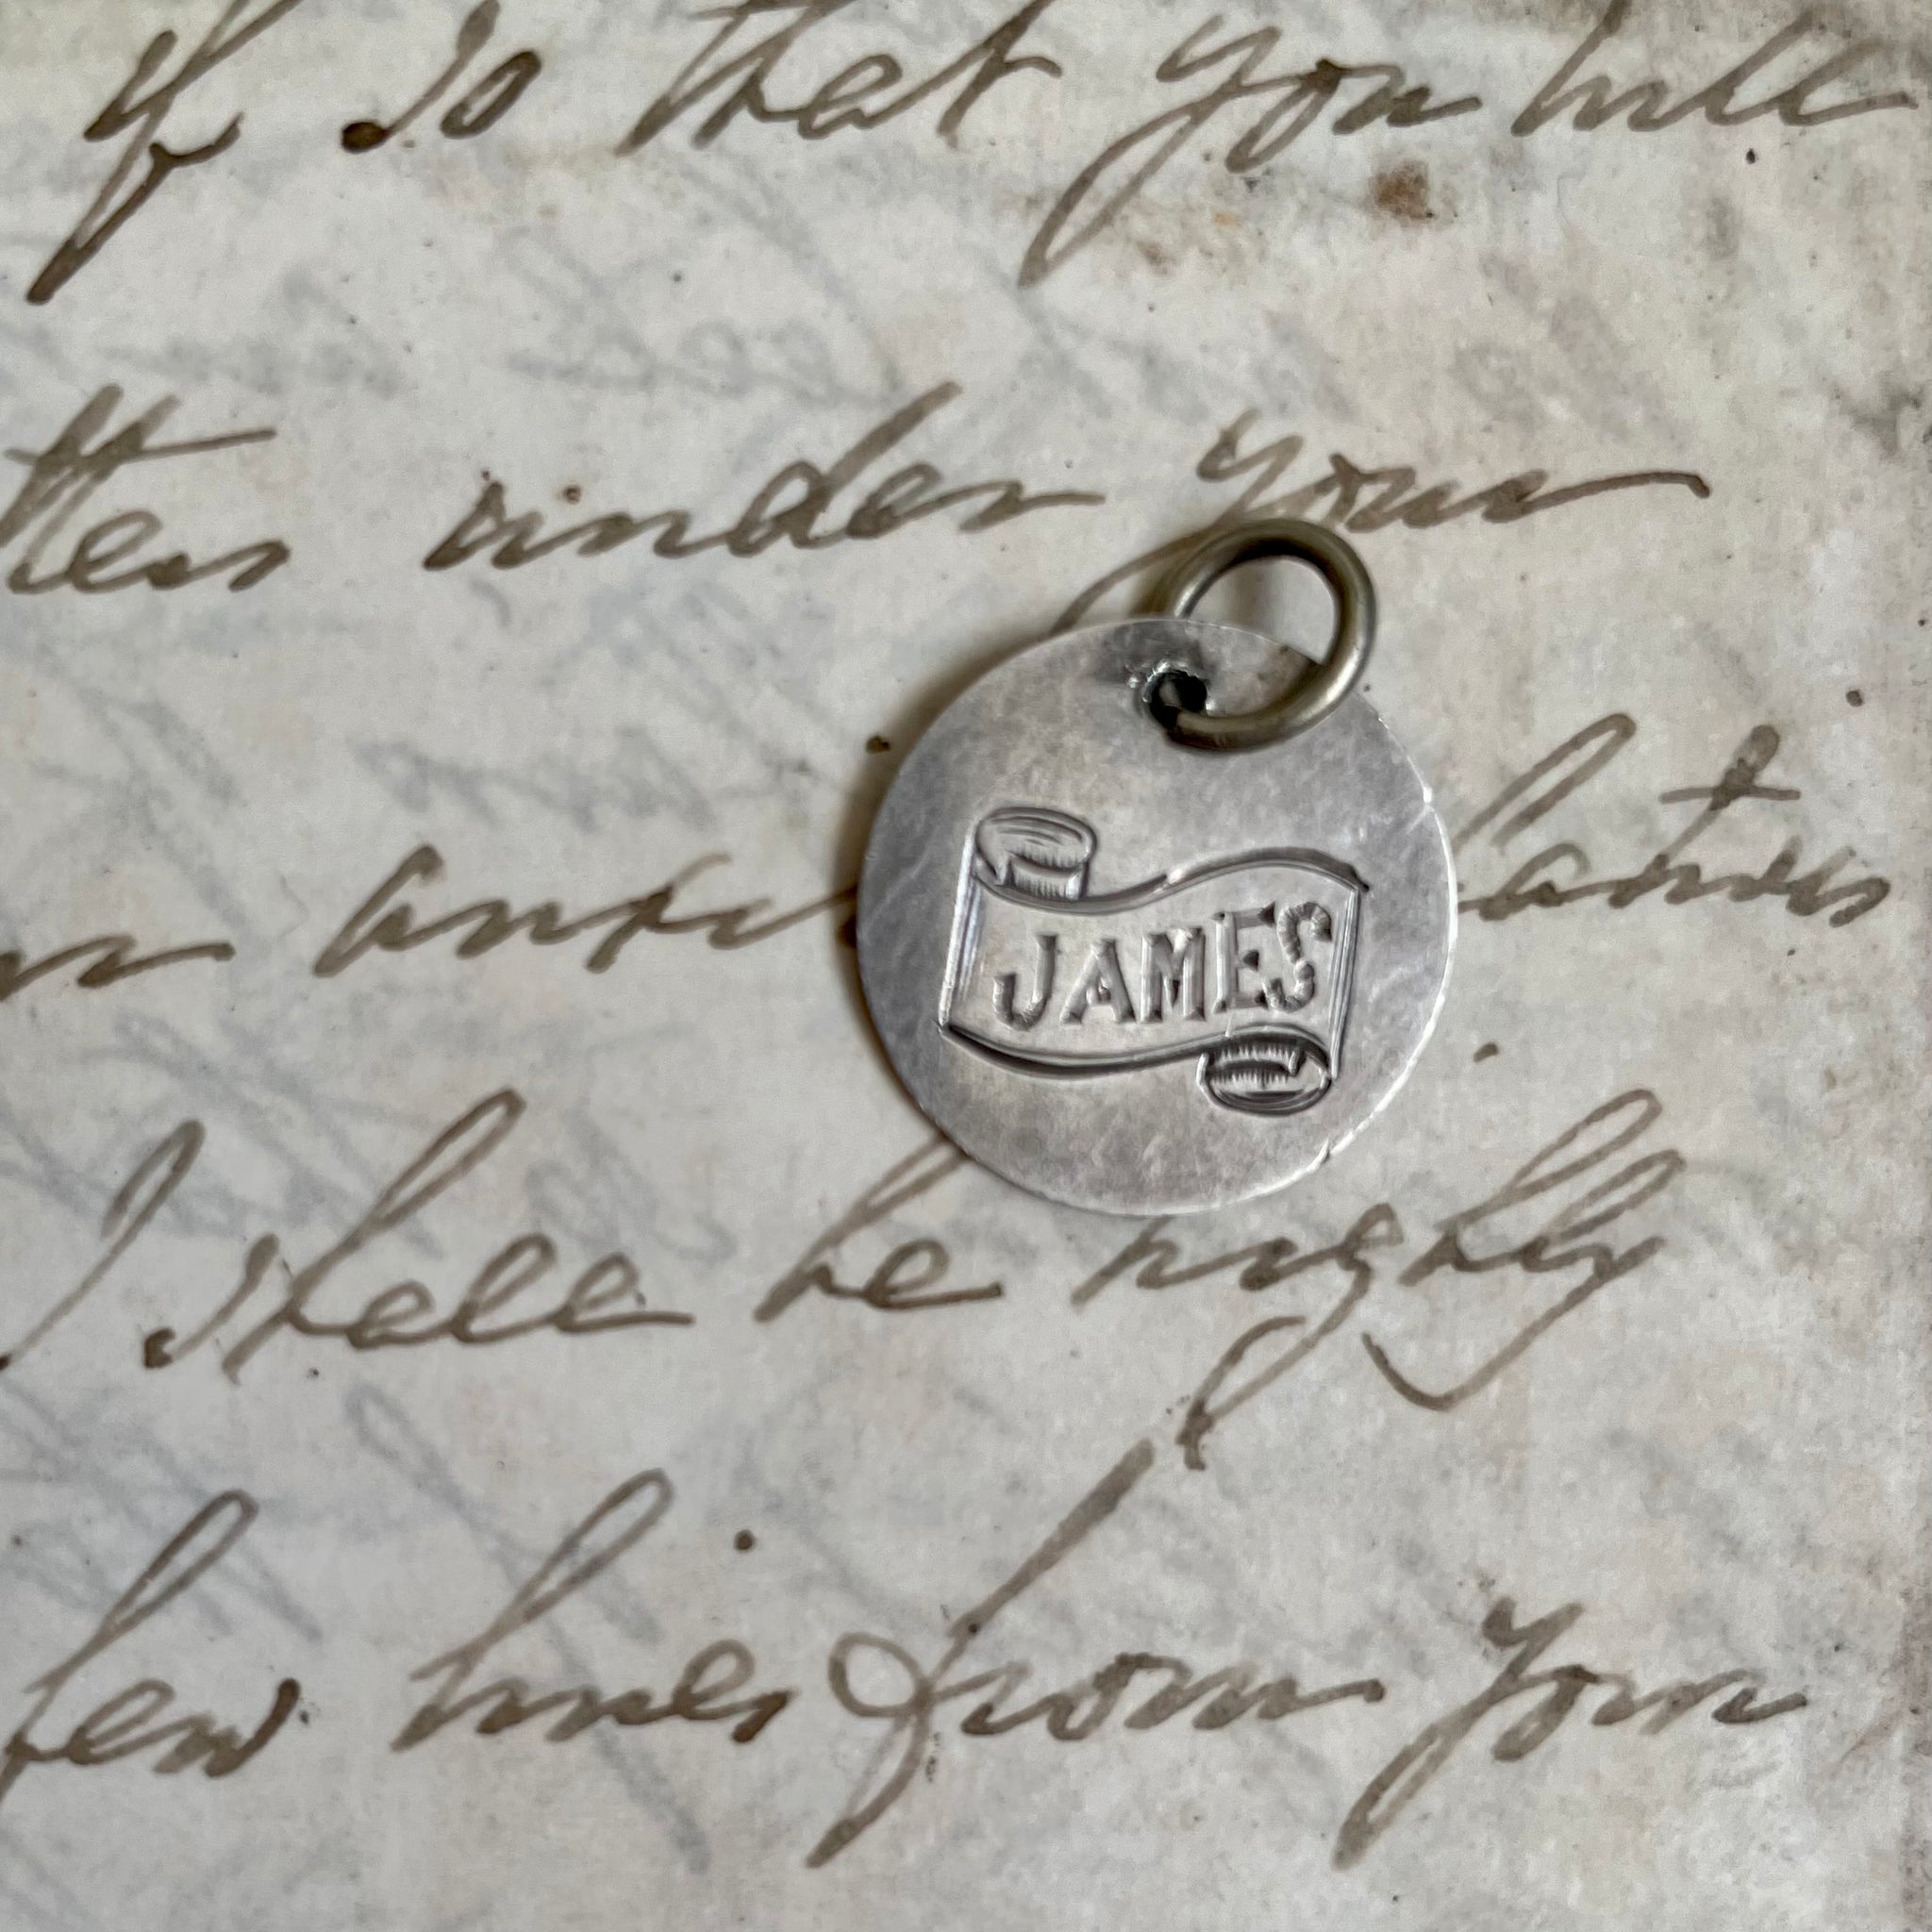 if so that you will
tters under your
JAMES
I shall be highly
few lines from you